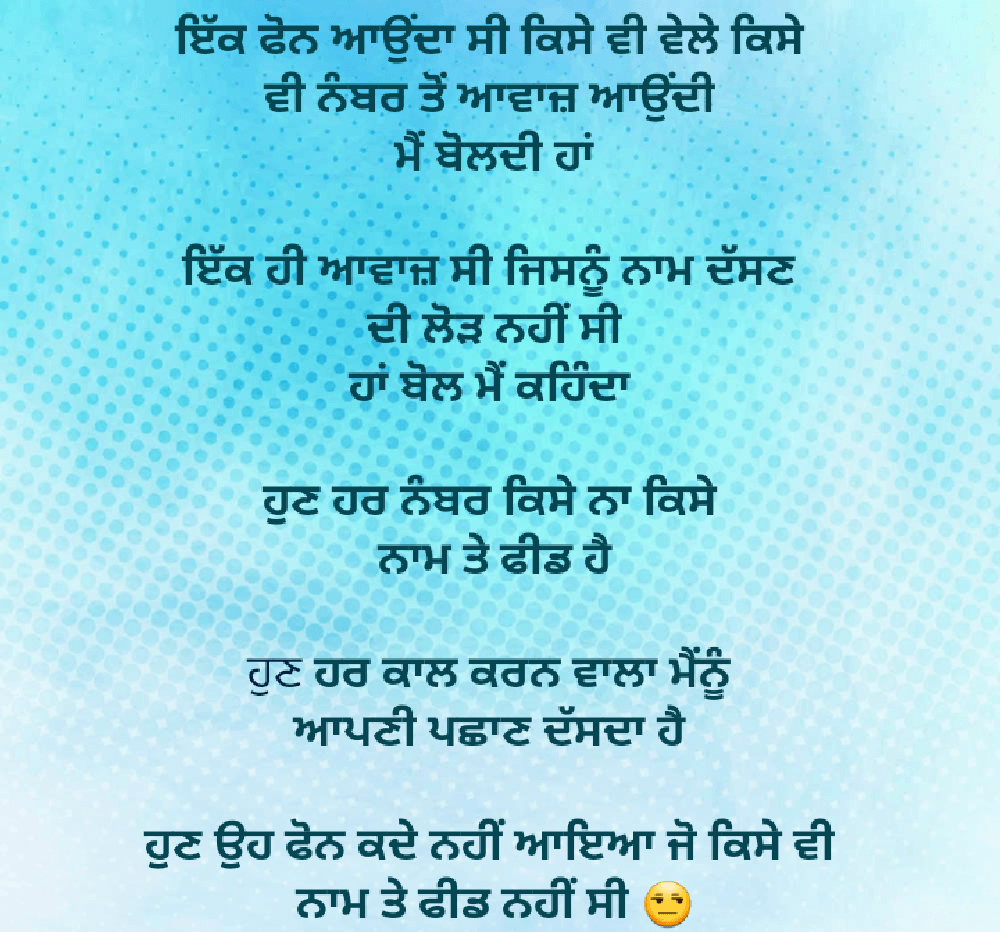 ਇੱਕ ਫੋਨ ਆਉਂਦਾ ਸੀ ਕਿਸੇ ਵੀ ਵੇਲੇ ਕਿਸੇ
ਵੀ ਨੰਬਰ ਤੋਂ ਆਵਾਜ਼ ਆਉਂਦੀ
ਮੈਂ ਬੋਲਦੀ ਹਾਂ
ਇੱਕ ਹੀ ਆਵਾਜ਼ ਸੀ ਜਿਸਨੂੰ ਨਾਮ ਦੱਸਣ
ਦੀ ਲੋੜ ਨਹੀਂ ਸੀ
ਹਾਂ ਬੋਲ ਮੈਂ ਕਹਿੰਦਾ
ਹੁਣ ਹਰ ਨੰਬਰ ਕਿਸੇ ਨਾ ਕਿਸੇ
ਨਾਮ ਤੇ ਫੀਡ ਹੈ
ਹੁਣ ਹਰ ਕਾਲ ਕਰਨ ਵਾਲਾ ਮੈਂਨੂੰ
ਆਪਣੀ ਪਛਾਣ ਦੱਸਦਾ ਹੈ
ਹੁਣ ਉਹ ਫੋਨ ਕਦੇ ਨਹੀਂ ਆਇਆ ਜੋ ਕਿਸੇ ਵੀ
ਨਾਮ ਤੇ ਫੀਡ ਨਹੀਂ ਸੀ 😒